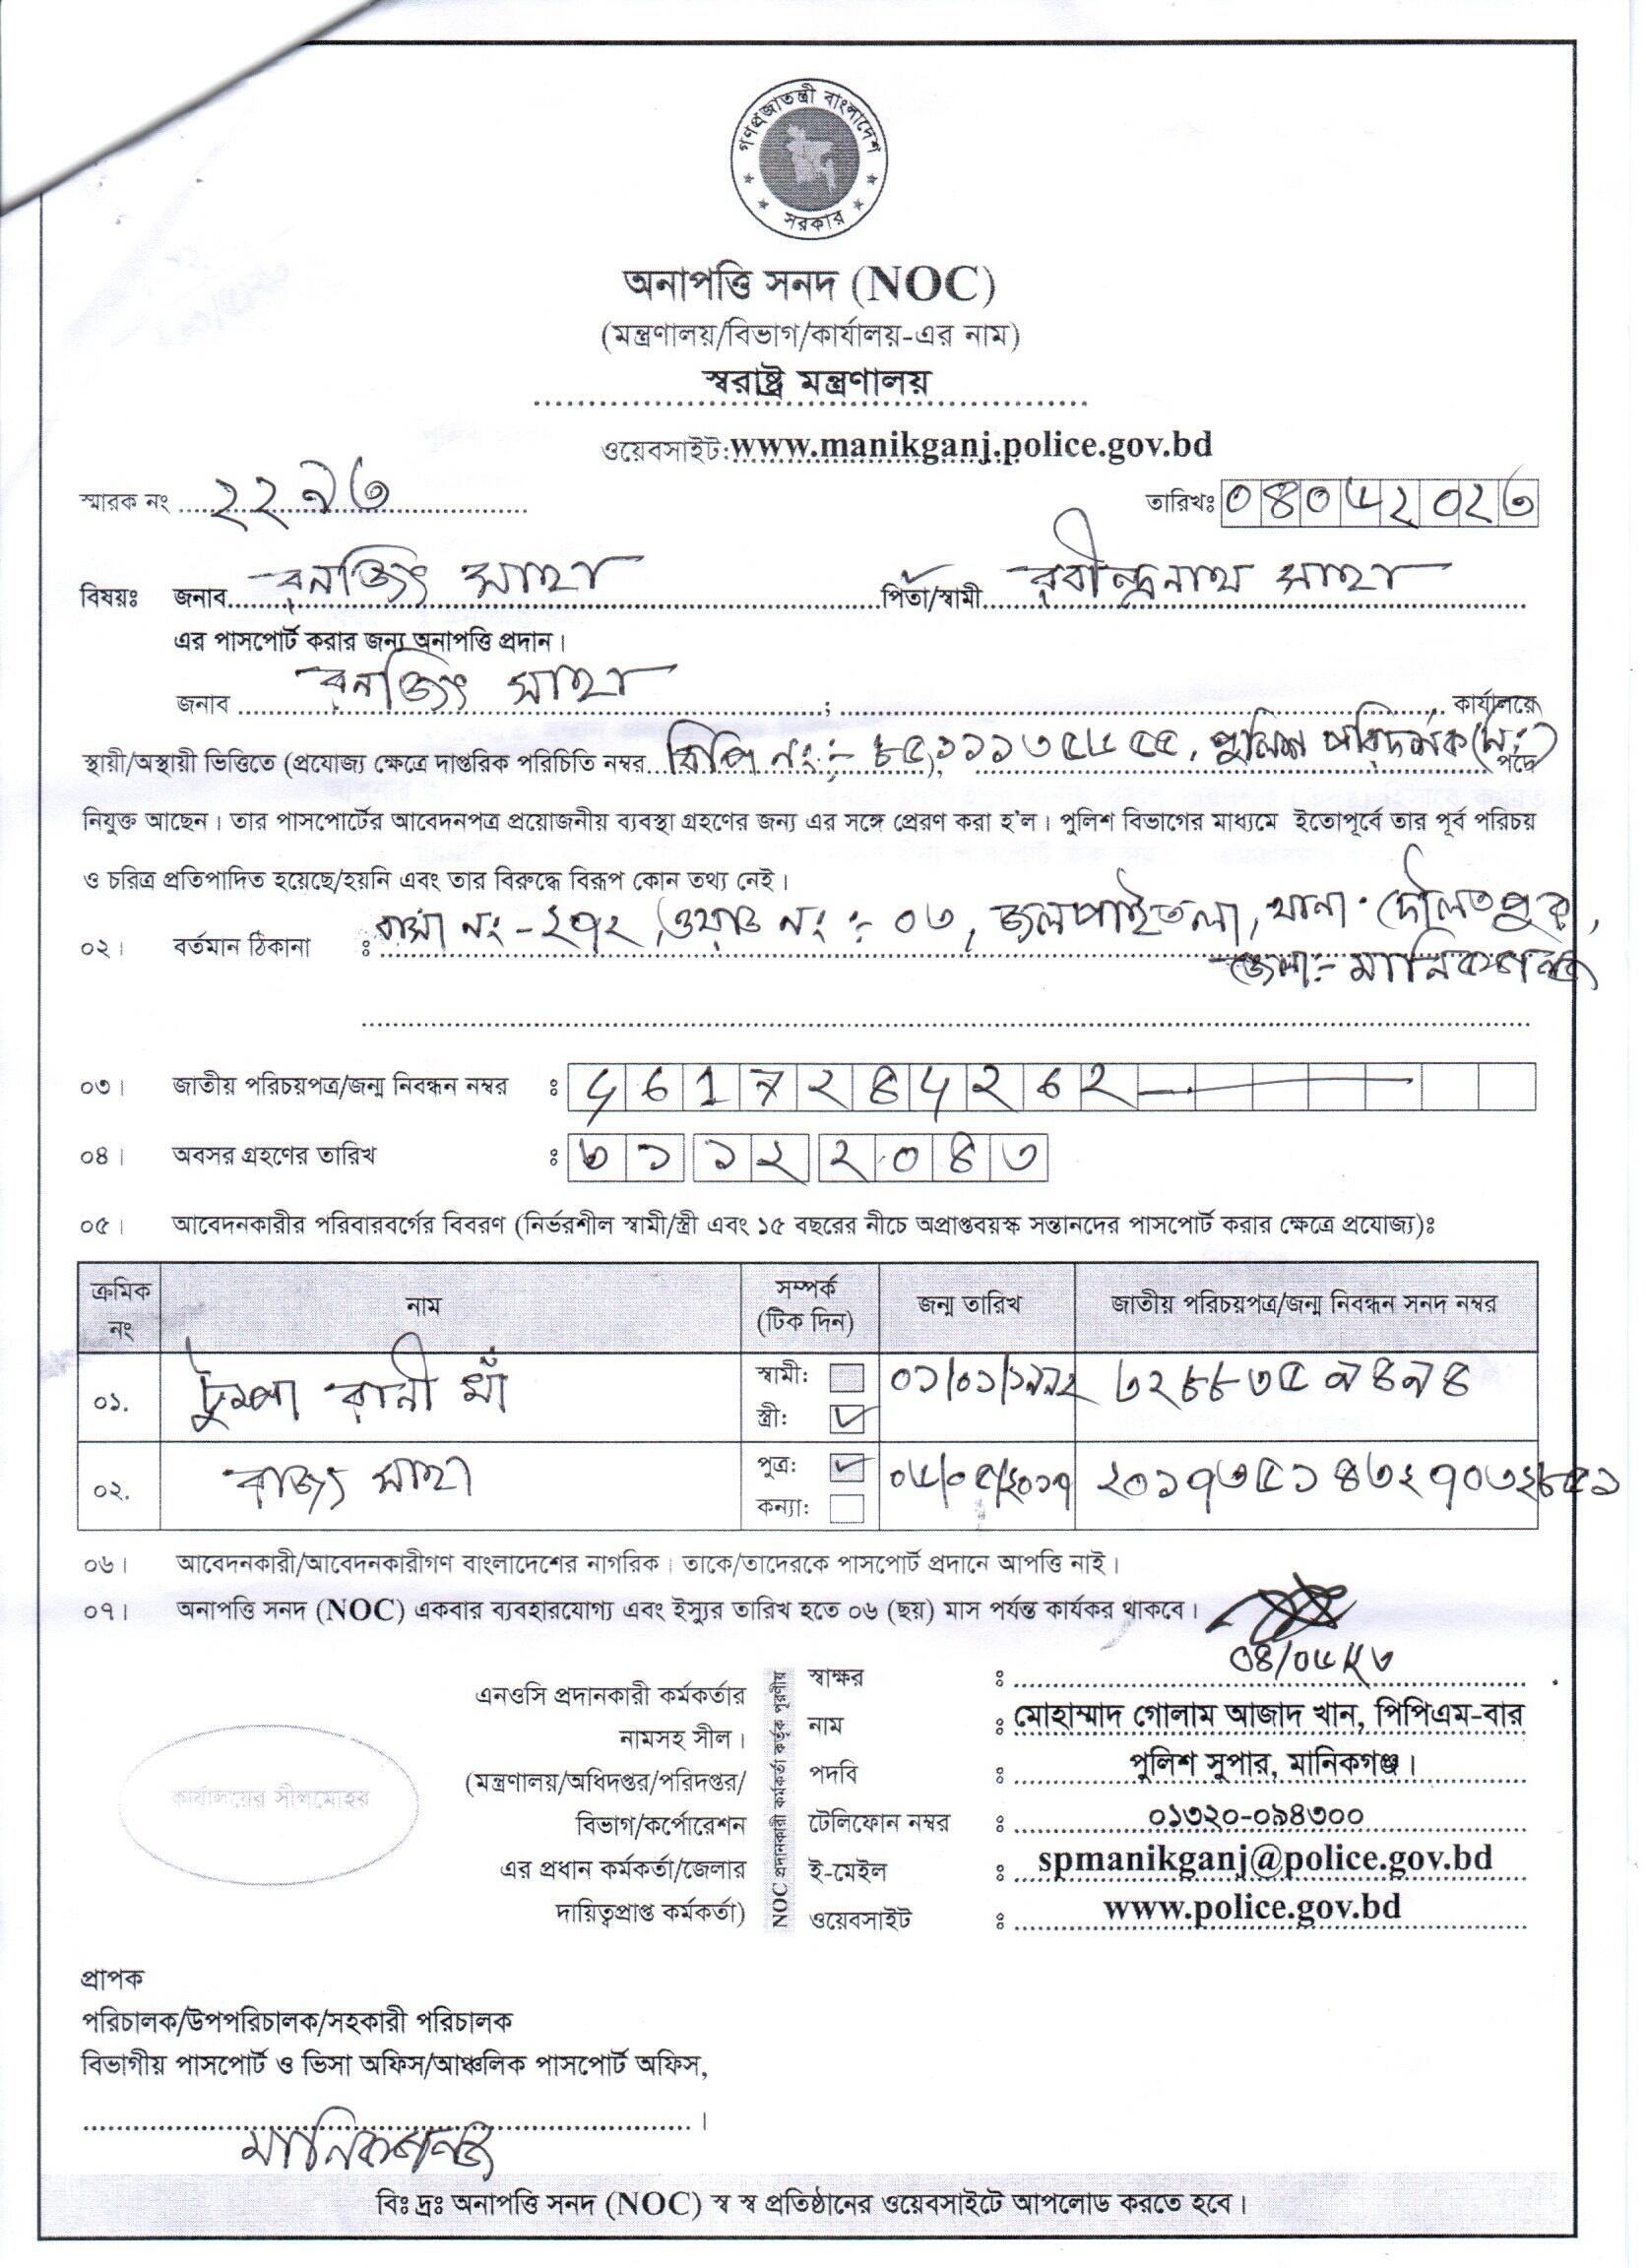 গণপ্রজাতন্ত্রী বাংলাদেশ
সরকার
অনাপত্তি সনদ (NOC)
(মন্ত্রণালয়/বিভাগ/কার্যালয়-এর নাম)
স্বরাষ্ট্র মন্ত্রণালয়
ওয়েবসাইট:www.manikganj.police.gov.bd
স্মারক নং ২২৯৩ তারিখঃ ০৪০৬২০২৩
বিষয়ঃ জনাব রনজিৎ সাহা পিতা/স্বামী রবীন্দ্রনাথ সাহা
এর পাসপোর্ট করার জন্য অনাপত্তি প্রদান।
জনাব রনজিৎ সাহা ; কার্যালয়ে
স্থায়ী/অস্থায়ী ভিত্তিতে (প্রযোজ্য ক্ষেত্রে দাপ্তরিক পরিচিতি নম্বর বিপি নং:- ), পুলিশ পরিদর্শক পদে
নিযুক্ত আছেন। তার পাসপোর্টের আবেদনপত্র প্রয়োজনীয় ব্যবস্থা গ্রহণের জন্য এর সঙ্গে প্রেরণ করা হ'ল। পুলিশ বিভাগের মাধ্যমে ইতোপূর্বে তার পূর্ব পরিচয়
ও চরিত্র প্রতিপাদিত হয়েছে/হয়নি এবং তার বিরুদ্ধে বিরূপ কোন তথ্য নেই।
০২। বর্তমান ঠিকানা ঃ বাসা নং - ২৭২, ওয়ার্ড নং :- ০৩, জলপাইতলা, থানা- দৌলতপুর,
জেলা:- মানিকগঞ্জ
০৩। জাতীয় পরিচয়পত্র/জন্ম নিবন্ধন নম্বর ঃ
০৪। অবসর গ্রহণের তারিখ ঃ ৩১১২২০৪৩
০৫। আবেদনকারীর পরিবারবর্গের বিবরণ (নির্ভরশীল স্বামী/স্ত্রী এবং ১৫ বছরের নীচে অপ্রাপ্তবয়স্ক সন্তানদের পাসপোর্ট করার ক্ষেত্রে প্রযোজ্য)ঃ
ক্রমিক নং নাম সম্পর্ক (টিক দিন) জন্ম তারিখ জাতীয় পরিচয়পত্র/জন্ম নিবন্ধন সনদ নম্বর
০১. টুম্পা রানী খাঁ স্বামী: স্ত্রী: ✓ ০১/০১/১৯৯২ ৩২৮৮৩৫৯৪৯৪
০২. সাহা পুত্র: ✓ কন্যা: ০৬/০৫/২০১৭ ২০১৭৩৫১৪৩২৭০৩২৮৫১
০৬। আবেদনকারী/আবেদনকারীগণ বাংলাদেশের নাগরিক। তাকে/তাদেরকে পাসপোর্ট প্রদানে আপত্তি নাই।
০৭। অনাপত্তি সনদ (NOC) একবার ব্যবহারযোগ্য এবং ইস্যুর তারিখ হতে ০৬ (ছয়) মাস পর্যন্ত কার্যকর থাকবে।
০৪/০৬/২৩
কার্যালয়ের সীলমোহর
এনওসি প্রদানকারী কর্মকর্তার
নামসহ সীল।
(মন্ত্রণালয়/অধিদপ্তর/পরিদপ্তর/
বিভাগ/কর্পোরেশন
এর প্রধান কর্মকর্তা/জেলার
দায়িত্বপ্রাপ্ত কর্মকর্তা)
NOC প্রদানকারী কর্মকর্তা কর্তৃক পূরণীয়
স্বাক্ষর ঃ
নাম ঃ মোহাম্মাদ গোলাম আজাদ খান, পিপিএম-বার
পদবি ঃ পুলিশ সুপার, মানিকগঞ্জ।
টেলিফোন নম্বর ঃ ০১৩২০-০৯৪৩০০
ই-মেইল ঃ spmanikganj@police.gov.bd
ওয়েবসাইট ঃ www.police.gov.bd
প্রাপক
পরিচালক/উপপরিচালক/সহকারী পরিচালক
বিভাগীয় পাসপোর্ট ও ভিসা অফিস/আঞ্চলিক পাসপোর্ট অফিস,
মানিকগঞ্জ ।
বিঃ দ্রঃ অনাপত্তি সনদ (NOC) স্ব স্ব প্রতিষ্ঠানের ওয়েবসাইটে আপলোড করতে হবে।